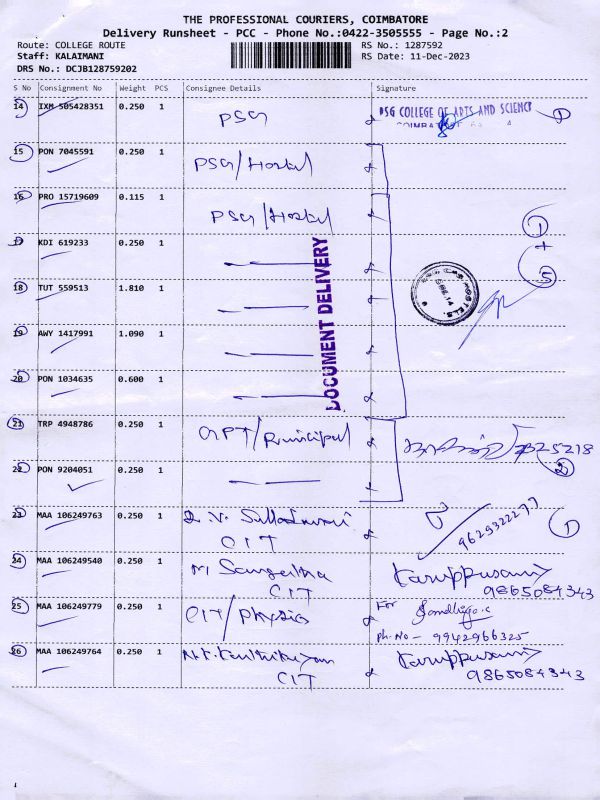 THE PROFESSIONAL COURIERS, COIMBATORE
Delivery Runsheet - PCC - Phone No.:0422-3505555 - Page No.:2
Route: COLLEGE ROUTE
RS No.: 1287592
Staff: KALAIMANI
RS Date: 11-Dec-2023
DRS No.: DCJB128759202
S No Consignment No Weight PCS Consignee Details Signature
14 IXM 505428351 0.250 1 PSG PSG COLLEGE OF ARTS AND SCIENCE 1
15 PON 7045591 0.250 1 PSG/Hostel
16 PRO 15719609 0.115 1 PSG/Hostel 1
+
5
17 KDI 619233 0.250 1
18 TUT 559513 1.810 1
19 AWY 1417991 1.090 1
20 PON 1034635 0.600 1
DOCUMENT DELIVERY
21 TRP 4948786 0.250 1 GPT/Principal
22 PON 9204051 0.250 1 2
23 MAA 106249763 0.250 1 CIT 1
24 MAA 106249540 0.250 1 M Sangeetha
CIT
Karuppusamy
9865084343
25 MAA 106249779 0.250 1 CIT/Physics For
Ph.No - 9942966325
26 MAA 106249764 0.250 1 CIT
Karuppusamy
9865084343